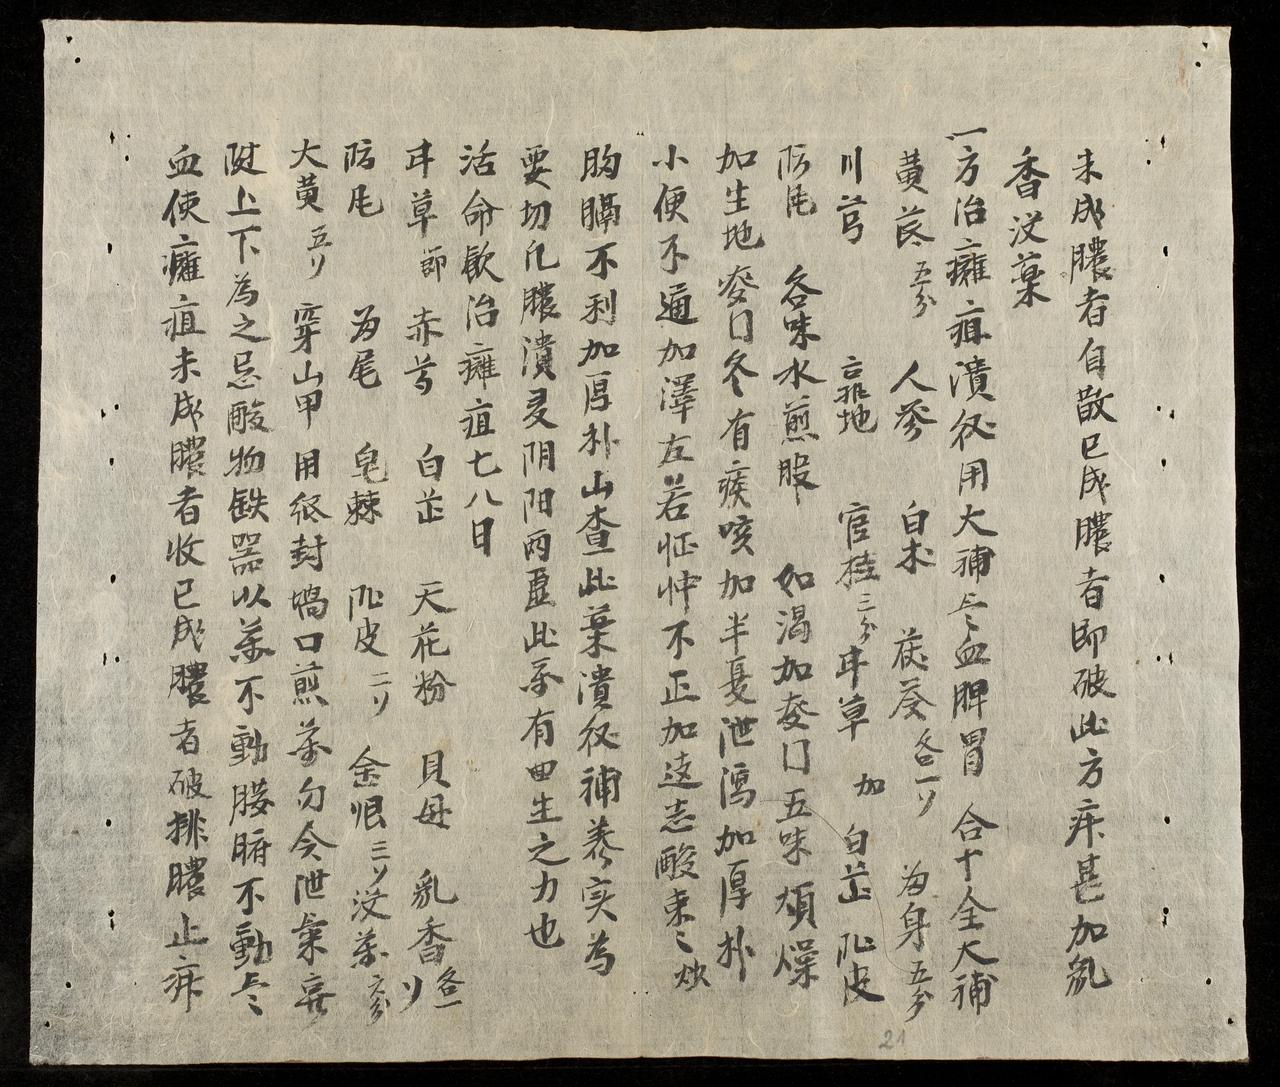 未成膿者自散已成膿者即破此方疼甚加乳
香没藥
一方治癰疽潰後用大補气血脾胃 合十全大補
黄芪五分 人參 白朮 茯苓各一 身五分
川芎 地 官桂三分 草 加 白芷 皮
防 各味水煎服 如渴加麦门五味煩燥
加生地麦门冬有痰咳加半夏泄瀉加厚朴
小便不通加澤左若怔忡不正加远志酸棗
胸膈不利加厚朴山查此藥潰後補养实為
要切凡膿潰受阴阳两虚此药有回生之力也
活命飲治癰疽七八日
草節 赤芍 白芷 天花粉 貝母 乳香各一
防 尾 皂棘 皮二 金 三 没药六分
大黄五 穿山甲 用 封堝口煎药勿令泄氣
上下為之忌酸物鉄器以药不動臟腑不動气
血使癰疽未成膿者收已成膿者破排膿止疼
21